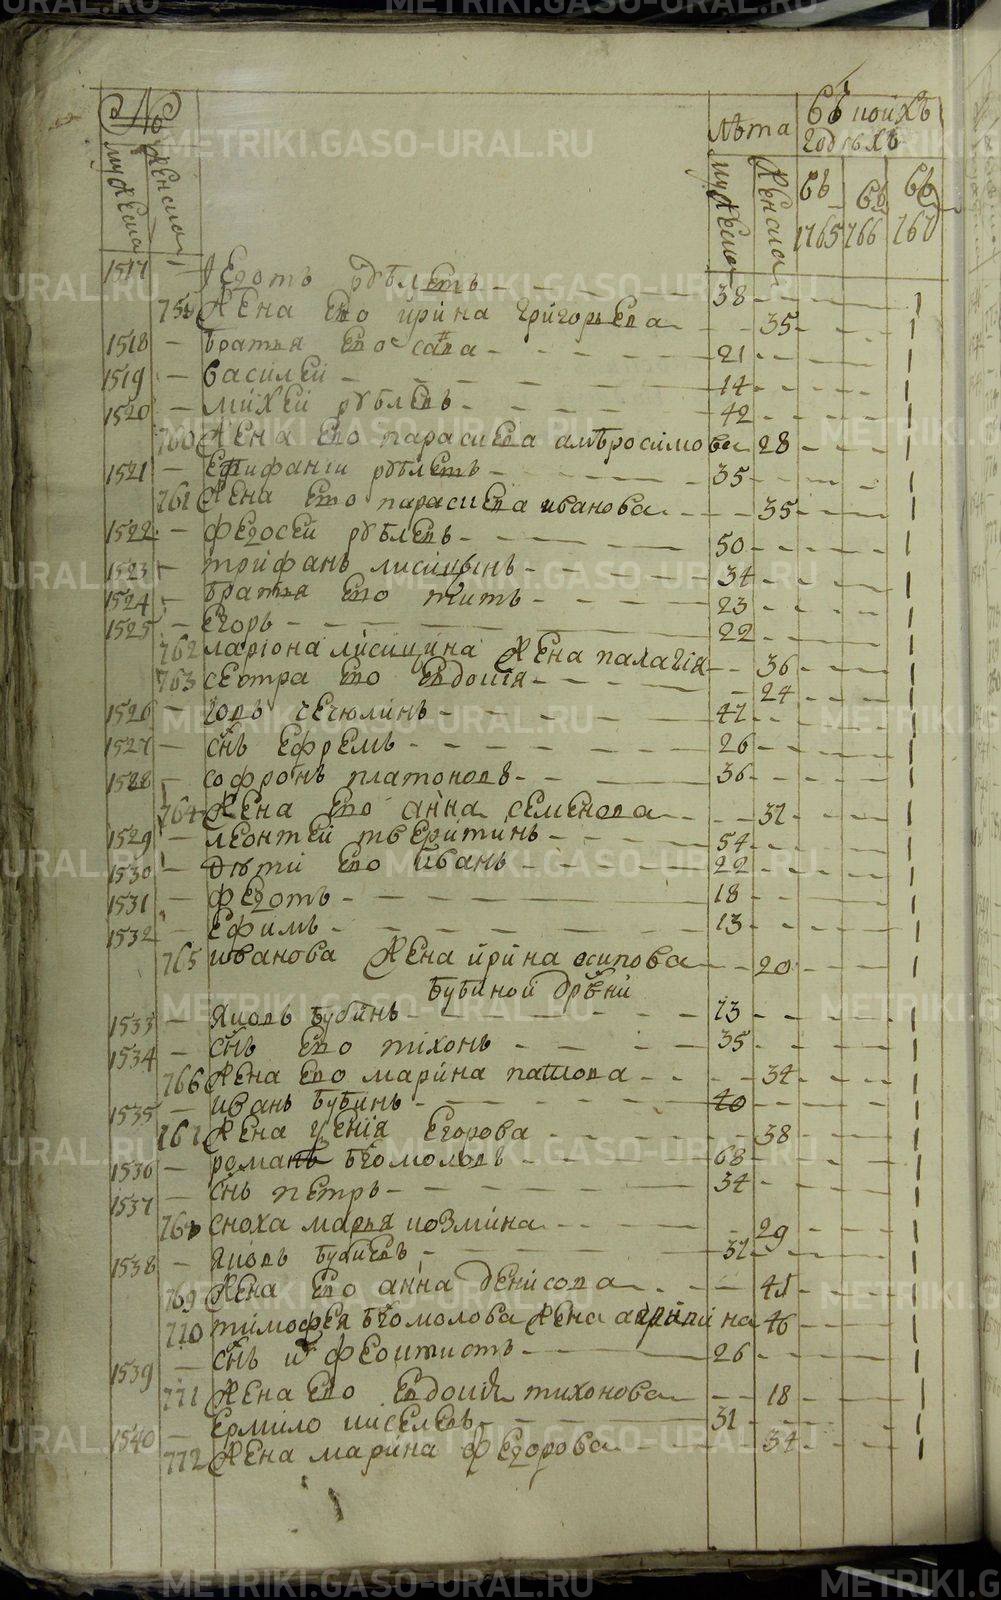 METRIKI.GASO-URAL.RU
№
мужска
женска
лѣта
въ коихъ
годѣхъ
мужска
женска
въ 1765
766
въ 767
1517 — Федотъ рѣлевъ 38
Жена ево ирина григорьева 35
1518 — братья ево сава 21
1519 — василей 14
1520 — михей рѣлевъ 42
760 Жена ево параскева амбросимова 28
1521 — епифантй рѣлевъ 35
761 Жена ево параскева иванова 35
1522 — федосей рѣлевъ 50
1523 — трифанъ лисицынъ 34
1524 — братья ево титъ 23
1525 — егоръ 22
762 лариона лисицина Жена палагия 36
763 сестра ево евдокия 24
1526 — 47
1527 — снъ ефремъ 26
1528 — софронъ платоновъ 36
764 Жена ево анна семенова 37
1529 — леонтей тверитинъ 54
1530 — дѣти ево иванъ 22
1531 — федотъ 18
1532 — ефимъ 13
765 иванова Жена ирина осипова 20
бубиной дрѣвни
1533 — яковъ бубинъ 73
1534 — снъ ево тихонъ 35
766 Жена ево марина павлова 34
1535 — иванъ бубинъ 40
767 Жена ксения егорова 38
1536 — романъ бгомоловъ 68
1537 — снъ петръ 34
768 сноха марья козмина 29
1538 — яковъ 37
769 Жена ево анна денисова 45
770 тимофея бгомолова Жена акрипина 46
1539 — снъ феоктистъ 26
771 Жена ево евдокия тихонова 18
1540 — ермило киселевъ 31
772 Жена марина федорова 34